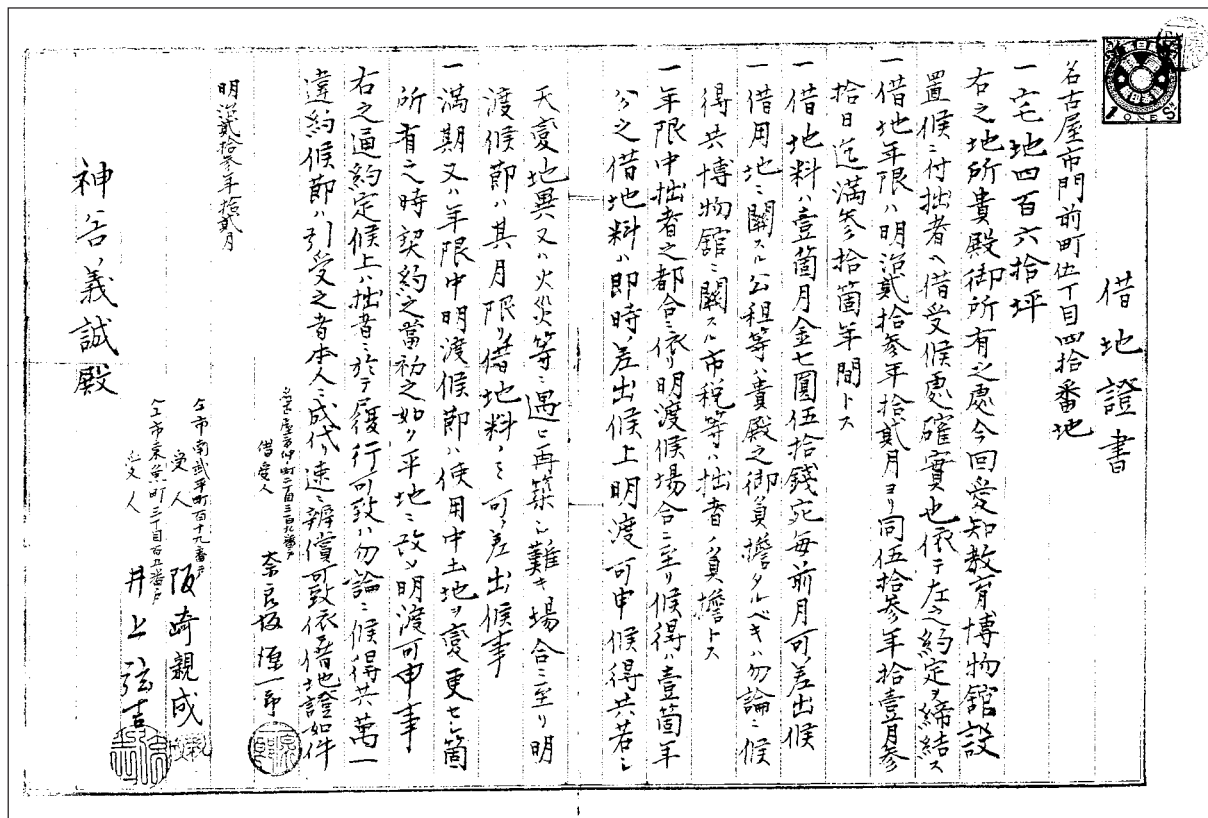 借地證書
名古屋市門前町伍丁目四拾番地
一宅地四百六拾坪
右之地所貴殿御所有之處今回愛知教育博物舘設
置候ニ付拙者ヘ借受候處確實也依テ左之約定ヲ締結ス
一借地年限ハ明治貳拾参年拾貳月ヨリ同伍拾参年拾壹月参
拾日迄満参拾箇年間トス
一借地料ハ壹箇月金七圓伍拾錢宛毎前月可差出候
一借用地ニ關スル公租等ハ貴殿之御負擔タルベキハ勿論ニ候
得共博物舘ニ關スル市税等ハ拙者ノ負擔トス
一年限中拙者之都合ニ依リ明渡候場合ニ至リ候得ハ壹箇年
分之借地料ハ即時ニ差出候上明渡可申候得共若シ
天變地異又ハ火災等ニ遇ヒ再築シ難キ場合ニ至リ明
渡候節ハ其月限リ借地料ノミ可差出候事
一満期又ハ年限中明渡候節ハ使用中土地ヲ變更セシ箇
所有之時契約之當初之如ク平地ニ改メ明渡可申事
右之通約定候上ハ拙者ニ於テ履行可致ハ勿論ニ候得共萬一
違約候節ハ引受之者本人ニ成代リ速ニ辨償可致依テ借地證如件
借受人
奈良坂
明治貳拾参年拾貳月
仝市南武平町百十九番戸
受人 阪崎親成
仝市東魚町三丁目百五番戸
受人 井上弦吉
神谷義誠殿